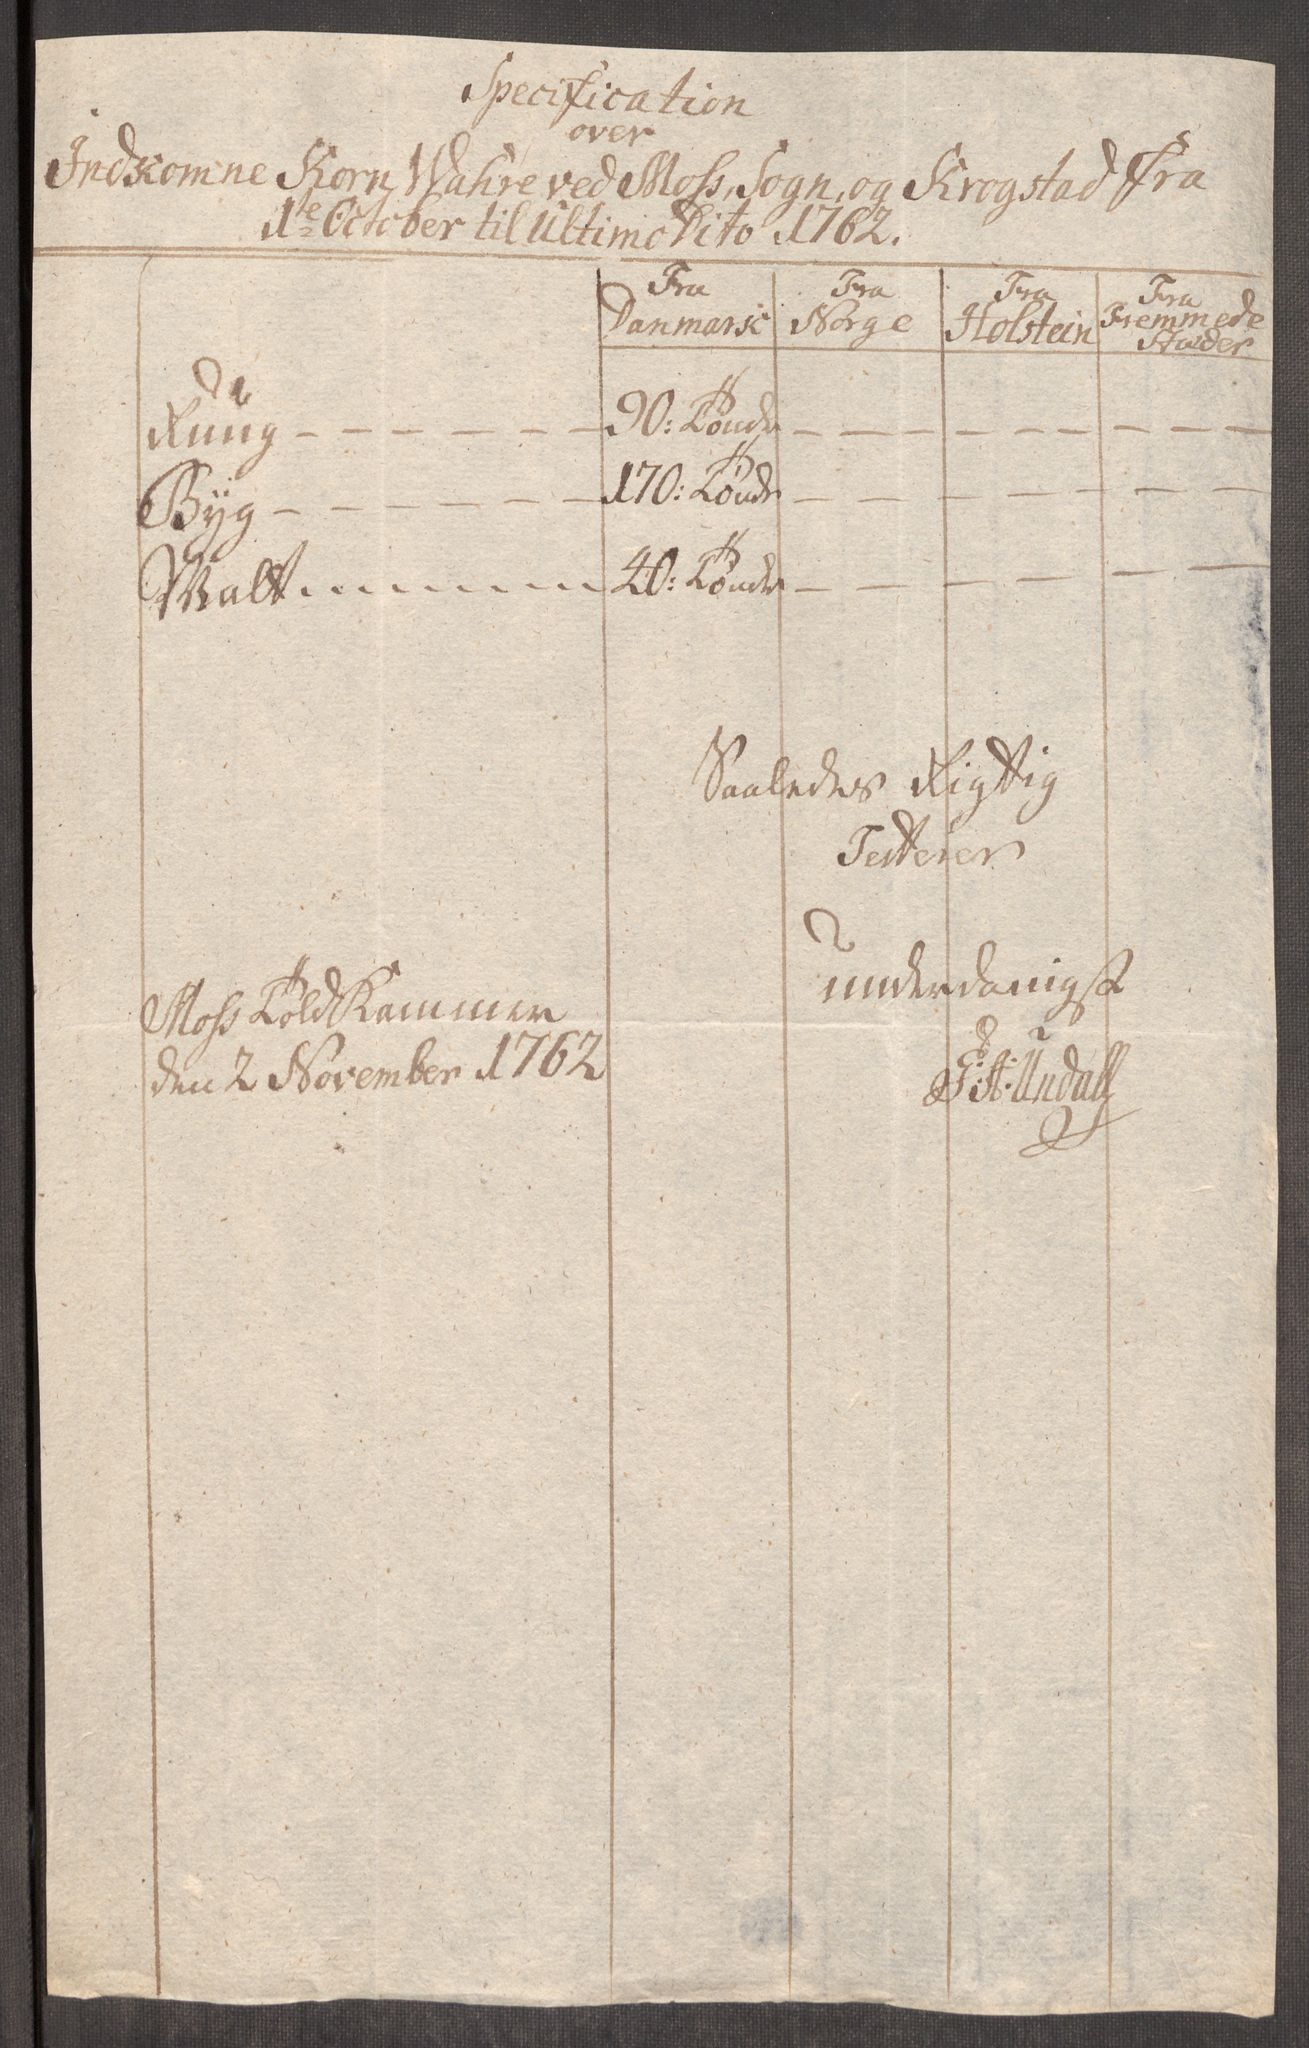 Specification
over
Indkomne Korn Wahre ved Moss, Sogn, og Krogstad Fra
1te October til Ultimo Dito 1762.
Fra Danmark Fra Norge Fra Holstein Fra Fremmede Stæder
Rüug – – – – – – – 90: Tønder – – – – – – – –
Byg – – – – – – 170: Tønder – – – – – – – –
Malt . . . . . . . . 40: Tønder – – – – – – –
Saaledes Rigttig
Testerer
underdanigst
Moss Told Kammer
den 2 November 1762
Undall